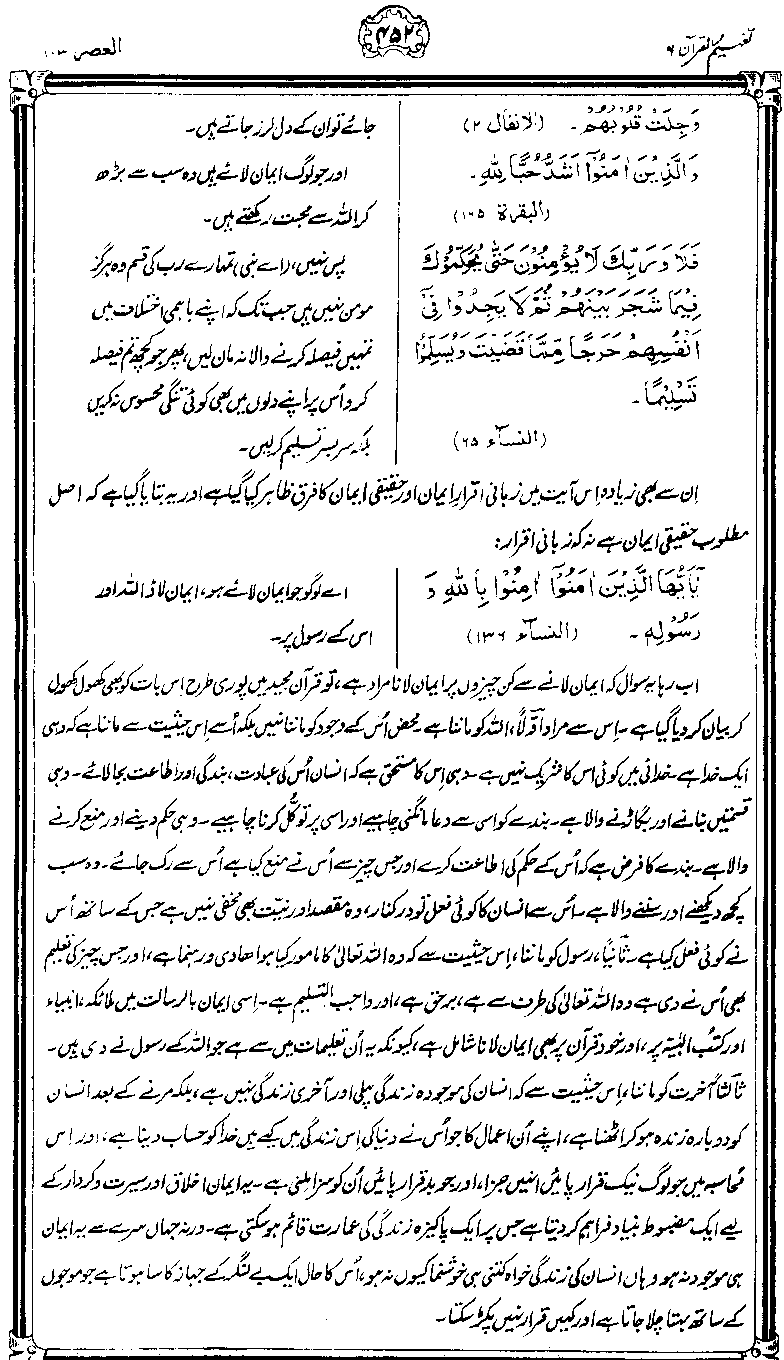 تفہیم القرآن ۶
۴۵۲
العصر ۱۰۳
وَجِلَتْ قُلُوْبُهُمْ۔ (الانفال ۲)
جائے تو ان کے دل لرز جاتے ہیں۔
وَالَّذِيْنَ اٰمَنُوْٓا اَشَدُّ حُبًّا لِّلّٰهِ۔
(البقرۃ ۱۶۵)
اور جو لوگ ایمان لائے ہیں وہ سب سے بڑھ
کر اللہ سے محبت رکھتے ہیں۔
فَلَا وَرَبِّكَ لَا يُؤْمِنُوْنَ حَتّٰى يُحَكِّمُوْكَ
فِيْمَا شَجَرَ بَيْنَهُمْ ثُمَّ لَا يَجِدُوْا فِىْٓ
اَنْفُسِهِمْ حَرَجًا مِّمَّا قَضَيْتَ وَيُسَلِّمُوْا
تَسْلِيْمًا۔
(النسآء ۶۵)
پس نہیں، (اے نبی) تمہارے رب کی قسم وہ ہرگز
مومن نہیں ہیں جب تک کہ اپنے باہمی اختلاف میں
تمہیں فیصلہ کرنے والا نہ مان لیں، پھر جو کچھ تم فیصلہ
کرو اُس پر اپنے دلوں میں بھی کوئی تنگی محسوس نہ کریں
بلکہ سر بسر تسلیم کرلیں۔
اِن سے بھی زیادہ اِس آیت میں زبانی اقرارِ ایمان اور حقیقی ایمان کا فرق ظاہر کیا گیا ہے اور یہ بتایا گیا ہے کہ اصل
مطلوب حقیقی ایمان ہے نہ کہ زبانی اقرار:
يٰٓاَيُّهَا الَّذِيْنَ اٰمَنُوْٓا اٰمِنُوْا بِاللّٰهِ وَ
رَسُوْلِهٖ۔ (النسآء ۱۳۶)
اے لوگو جو ایمان لائے ہو، ایمان لاؤ اللہ اور
اس کے رسول پر۔
اب رہا یہ سوال کہ ایمان لانے سے کن چیزوں پر ایمان لانا مراد ہے، تو قرآن مجید میں پوری طرح اِس بات کو بھی کھول کھول
کر بیان کر دیا گیا ہے۔ اِس سے مراد اوّلاً، اللہ کو ماننا ہے۔ محض اُس کے وجود کو ماننا نہیں بلکہ اُسے اِس حیثیت سے ماننا ہے کہ وہی
ایک خدا ہے۔ خدائی میں کوئی اس کا شریک نہیں ہے۔ وہی اِس کا مستحق ہے کہ انسان اُس کی عبادت، بندگی اور اطاعت بجا لائے۔ وہی
قسمتیں بنانے اور بگاڑنے والا ہے۔ بندے کو اسی سے دعا مانگنی چاہیے اور اسی پر توکُّل کرنا چاہیے۔ وہی حکم دینے اور منع کرنے
والا ہے۔ بندے کا فرض ہے کہ اُس کے حکم کی اطاعت کرے اور جس چیز سے اُس نے منع کیا ہے اُس سے رک جائے۔ وہ سب
کچھ دیکھنے اور سننے والا ہے۔ اُس سے انسان کا کوئی فعل تو در کنار، وہ مقصد اور نیت بھی مخفی نہیں ہے جس کے ساتھ اُس
نے کوئی فعل کیا ہے۔ ثانیاً، رسول کو ماننا، اِس حیثیت سے کہ وہ اللہ تعالیٰ کا مامور کیا ہوا ھادی و رہنما ہے، اور جس چیز کی تعلیم
بھی اُس نے دی ہے وہ اللہ تعالیٰ کی طرف سے ہے، برحق ہے، اور واجب التسلیم ہے۔ اِسی ایمان بالرسالت میں ملائکہ، انبیاء
اور کتبِ الٰہیہ پر، اور خود قرآن پر بھی ایمان لانا شامل ہے، کیونکہ یہ اُن تعلیمات میں سے ہے جو اللہ کے رسول نے دی ہیں۔
ثالثاً آخرت کو ماننا، اِس حیثیت سے کہ انسان کی موجودہ زندگی پہلی اور آخری زندگی نہیں ہے، بلکہ مرنے کے بعد انسان
کو دوبارہ زندہ ہو کر اٹھنا ہے، اپنے اُن اعمال کا جو اُس نے دنیا کی اِس زندگی میں کیے ہیں خدا کو حساب دینا ہے، اور اِس
محاسبہ میں جو لوگ نیک قرار پائیں انہیں جزا، اور جو بد قرار پائیں اُن کو سزا ملنی ہے۔ یہ ایمان اخلاق اور سیرت و کردار کے
لیے ایک مضبوط بنیاد فراہم کر دیتا ہے جس پر ایک پاکیزہ زندگی کی عمارت قائم ہو سکتی ہے۔ ورنہ جہاں سرے سے یہ ایمان
ہی موجود نہ ہو وہاں انسان کی زندگی خواہ کتنی ہی خوشنما کیوں نہ ہو، اُس کا حال ایک بے لنگر کے جہاز کا سا ہوتا ہے جو موجوں
کے ساتھ بہتا چلا جاتا ہے اور کہیں قرار نہیں پکڑ سکتا۔